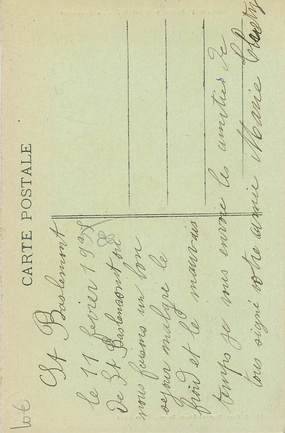 CARTE POSTALE
St Baslemont
le 11 février
de St Baslemont où
nous faisons un bon
séjour malgré le
froid et le mauvais
temps je vous envoie les amitiés de
tous signé votre amie Marie